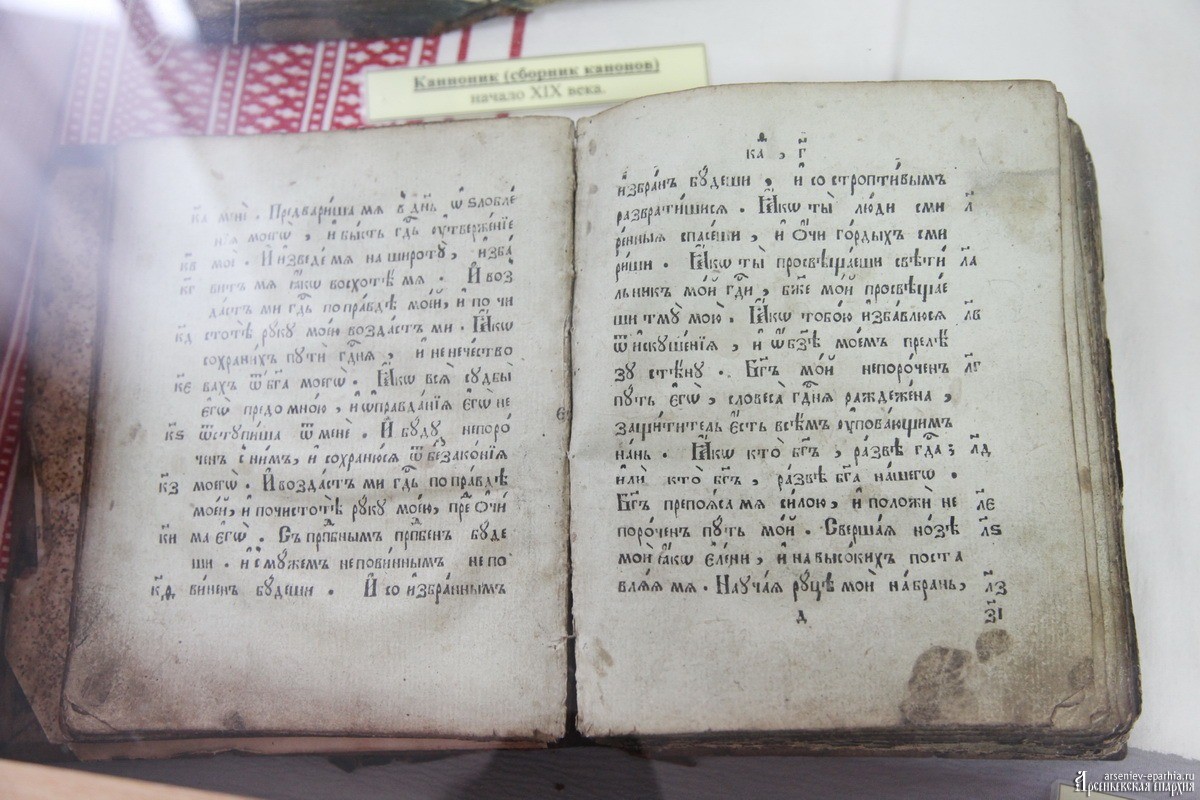 Каннонник (сборник канонов)
начало XIX века.
к҃а мѐнѐ . Предвари́ша мѧ в дн҃ь ѡ҆ѕлобле́
нїѧ моегѡ̀ , и҆ бы́сть гдⷭ҇ь ᲂу҆твержѐнїе
к҃в моѐ . И҆ и҆зведе́ мѧ на широтꙋ̀ , и҆зба́
к҃г витъ мѧ ꙗ҆́кѡ восхотѣ́ мѧ . И҆ воз
да́стъ ми гдⷭ҇ь по пра́вдѣ мое́й , и҆ по чи
к҃д стотѣ̀ рꙋкꙋ̀ моѐю возда́стъ ми . Ꙗ҆́кѡ
сохрани́хъ пꙋти̑ гдⷭ҇нѧ , и҆ не нече́ство
к҃є вахъ ѿ бг҃а моегѡ̀ . Ꙗ҆́кѡ всѧ̀ сꙋдбы̀
є҆гѡ̀ предо мно́ю , и҆ ѡ҆правда̑нїѧ є҆гѡ̀ не
к҃ѕ ѿстꙋпи́ша ѿ менѐ . И҆ бꙋ́дꙋ непоро́
ченъ с ни́мъ , и҆ сохраню́сѧ ѿ беззако́нїѧ
к҃з моегѡ̀ . И҆ возда́стъ ми гдⷭ҇ь по пра́вдѣ
мое́й , и҆ по чистотѣ̀ рꙋкꙋ̀ моѐю , пред̾ ѻ҆чи́
к҃и ма є҆гѡ̀ . Съ прпⷣбнымъ прпⷣбенъ бꙋ́де
ши . и҆ с мꙋ́жемъ непови́ннымъ непо
к҃ѳ ви́ненъ бꙋ́деши . И҆ со и҆збра́ннымъ
каⷴ , г҃
и҆збра́нъ бꙋ́деши , и҆ со стропти́вымъ
разврати́шисѧ . Ꙗ҆́кѡ ты̀ лю́ди сми л҃
ре́нныѧ спасе́ши , и҆ ѻ҆́чи го́рдыхъ сми
ри́ши . Ꙗ҆́кѡ ты̀ просвѣща́еши свѣти́ л҃а
льникъ мо́й гдⷭ҇и , бж҃е мо́й просвѣща́е
ши тмꙋ̀ мою̀ . Ꙗ҆́кѡ тобо́ю и҆зба́влюсѧ л҃в
ѿ и҆скꙋше́нїѧ , и҆ ѡ҆ бз҃ѣ мое́мъ прелѣ́
зꙋ стѣ́нꙋ . Бг҃ъ мо́й непоро́ченъ л҃г
пꙋ́ть є҆гѡ̀ , словеса̀ гдⷭ҇нѧ раждеже́на ,
защи́титель є҆́сть всѣ́мъ ᲂу҆пова́ющимъ
на́нь . Ꙗ҆́кѡ кто̀ бг҃ъ , ра́звѣ гдⷭ҇а ; л҃д
и҆лѝ кто̀ бг҃ъ , ра́звѣ бг҃а на́шегѡ .
Бг҃ъ препоѧ́са мѧ си́лою , и҆ положѝ не л҃є
поро́ченъ пꙋ́ть мо́й . Сверша́ѧ но́зѣ л҃ѕ
моѝ ꙗ҆́кѡ є҆ле́ни , и҆ на высо́кихъ поста
влѧ́ѧ мѧ . Наꙋча́ѧ рꙋ́цѣ моѝ на бра́нь , л҃з
д з҃і
arseniev-eparhia.ru
Арсеньевская епархия